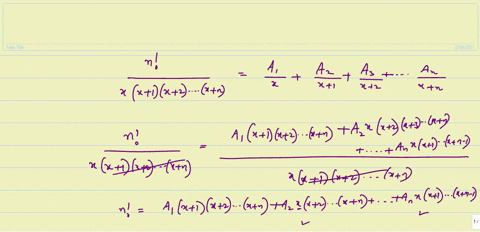 n! / x(x+1)(x+2)...(x+n) = A₁/x + A₂/x+1 + A₃/x+2 + ... Aₙ/x+n
n! / x(x+1)(x+2)...(x+n) = A₁(x+1)(x+2)...(x+n) + A₂x(x+2)(x+3)...(x+n) + .... + Aₙx(x+1)...(x+n-1) / x(x+1)(x+2)...(x+n)
n! = A₁(x+1)(x+2)...(x+n) + A₂x(x+2)...(x+n) + ... + Aₙx(x+1)...(x+n-1)